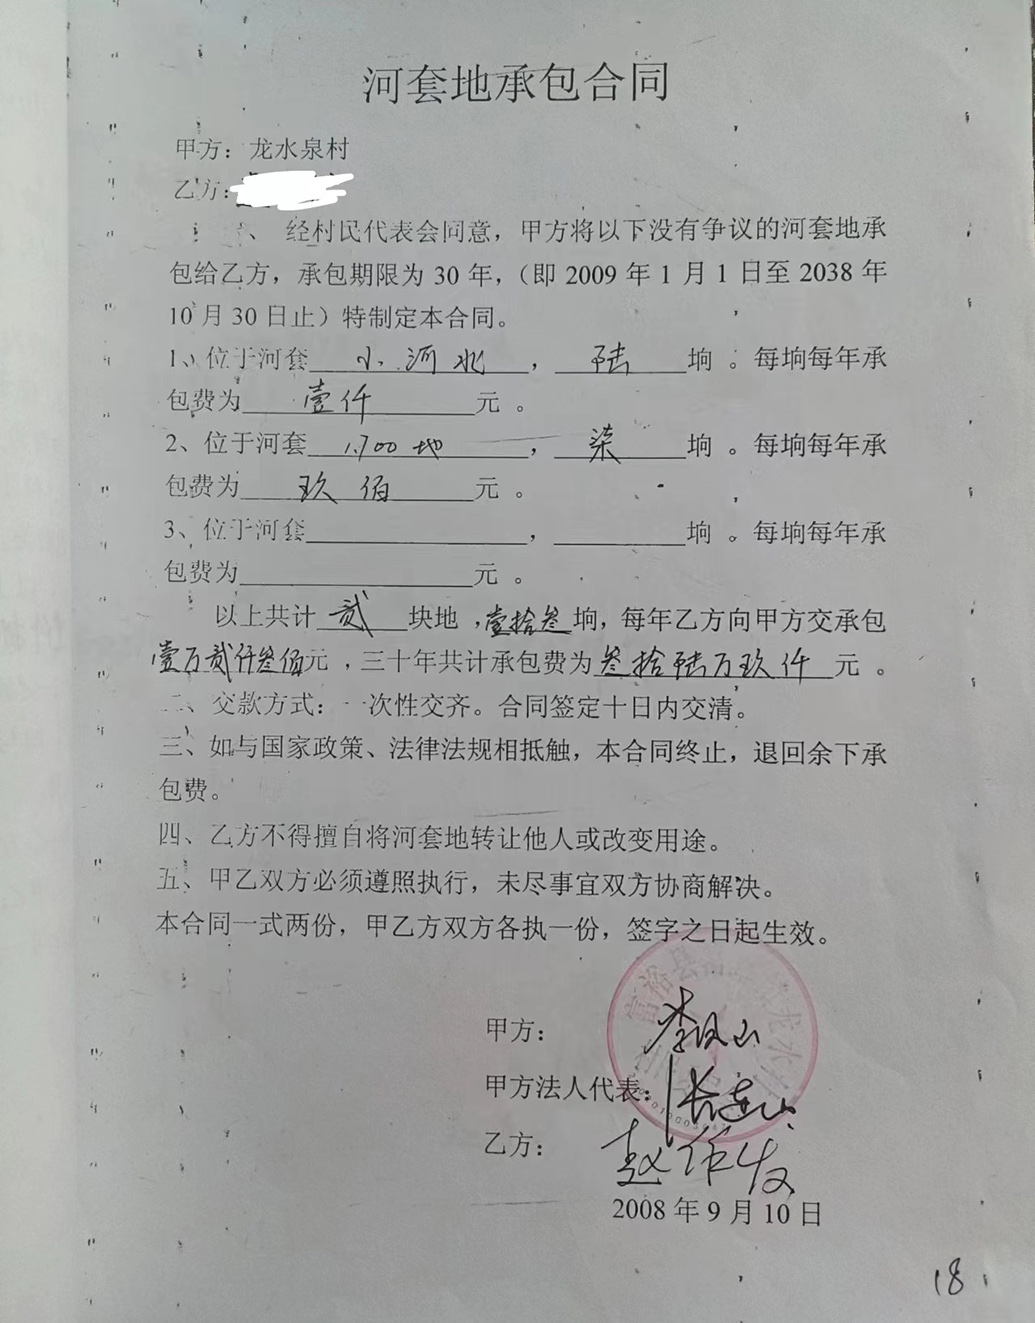 河套地承包合同
甲方：龙水泉村
乙方：
一、经村民代表会同意，甲方将以下没有争议的河套地承
包给乙方，承包期限为 30 年，（即 2009 年 1 月 1 日至 2038 年
10 月 30 日止）特制定本合同。
1、位于河套 小河北 ， 陆 垧 。每垧每年承
包费为 壹仟 元 。
2、位于河套 1.700 地 ， 柒 垧 。每垧每年承
包费为 玖佰 元 。
3、位于河套 ， 垧 。每垧每年承
包费为 元 。
以上共计 贰 块地 ，壹拾叁垧，每年乙方向甲方交承包
壹万贰仟叁佰元 ，三十年共计承包费为叁拾陆万玖仟 元 。
二、交款方式：一次性交齐。合同签定十日内交清。
三、如与国家政策、法律法规相抵触，本合同终止，退回余下承
包费。
四、乙方不得擅自将河套地转让他人或改变用途。
五、甲乙双方必须遵照执行，未尽事宜双方协商解决。
本合同一式两份，甲乙方双方各执一份，签字之日起生效。
富裕县 龙水
甲方： 李凤山
甲方法人代表： 张连山
乙方： 赵作发
2008 年 9 月 10 日
18